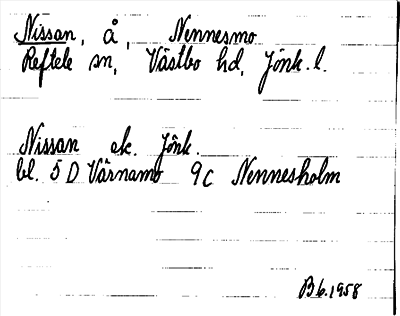 Nissan, å, Nennesmo
Reftele sn, Västbo hd, Jönk. l.
Nissan ek. Jönk.
bl. 5 D Värnamo 9c Nennesholm
B6.1958